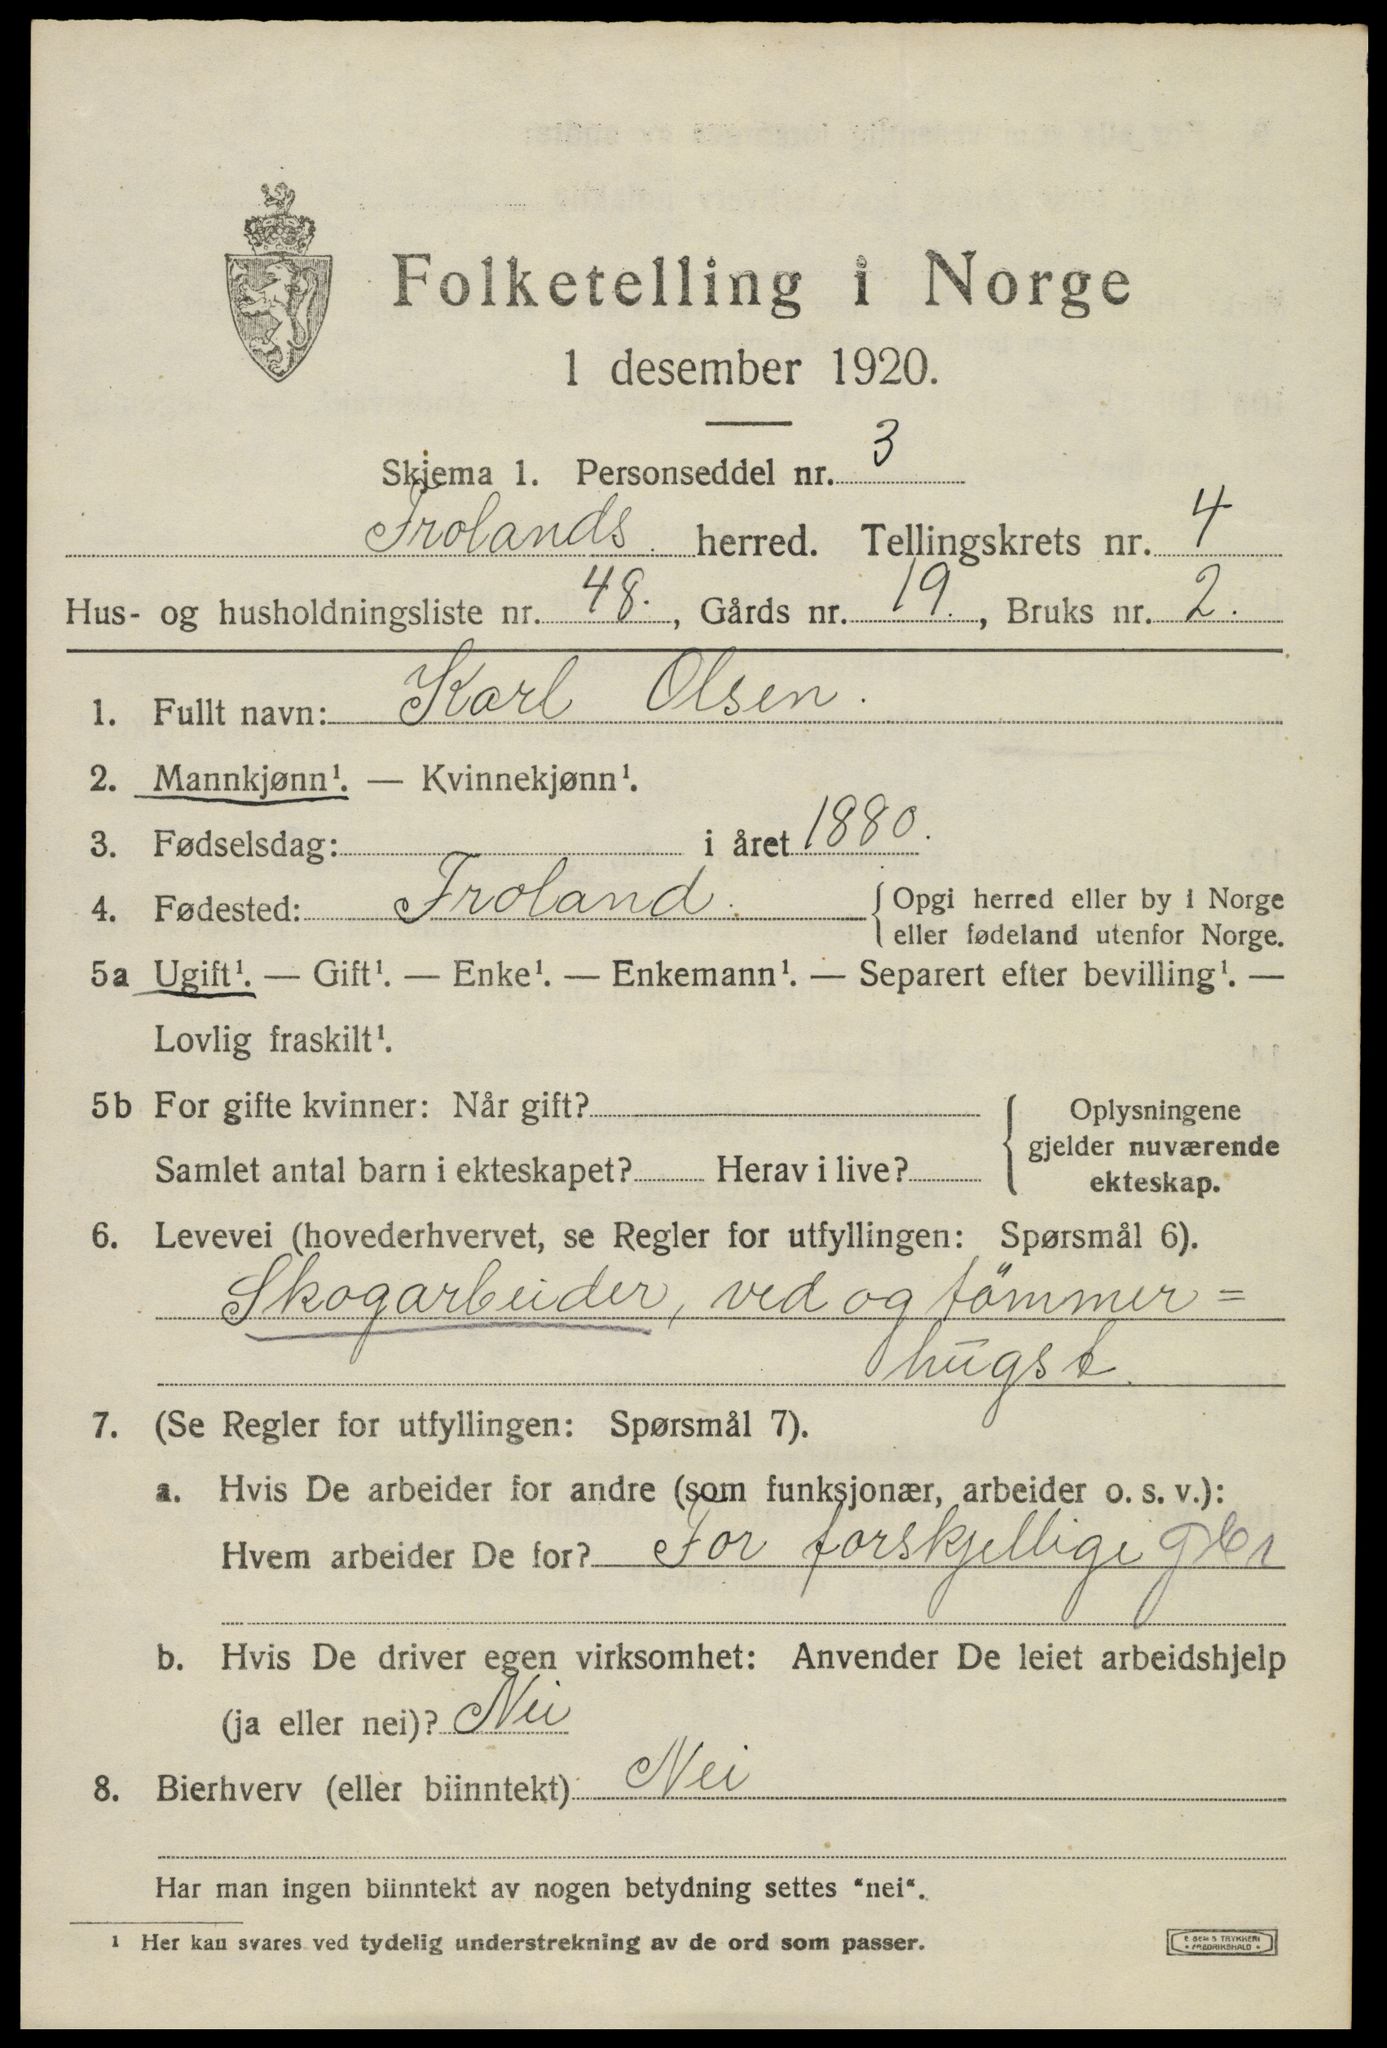 Folketelling i Norge
1 desember 1920.
Skjema 1. Personseddel nr. 3
Frolands herred. Tellingskrets nr. 4
Hus- og husholdningsliste nr. 48., Gårds nr. 19., Bruks nr. 2.
1. Fullt navn: Karl Olsen.
2. Mannkjønn¹. — Kvinnekjønn¹.
3. Fødselsdag: i året 1880.
4. Fødested: Froland. { Opgi herred eller by i Norge
eller fødeland utenfor Norge.
5a Ugift¹. — Gift¹. — Enke¹. — Enkemann¹. — Separert efter bevilling¹. —
Lovlig fraskilt¹.
5b For gifte kvinner: Når gift?
Samlet antal barn i ekteskapet? Herav i live?
{ Oplysningene
gjelder nuværende
ekteskap.
6. Levevei (hovederhvervet, se Regler for utfyllingen: Spørsmål 6).
Skogarbeider, ved og tömmer=
hugst.
7. (Se Regler for utfyllingen: Spørsmål 7).
a. Hvis De arbeider for andre (som funksjonær, arbeider o. s. v.):
Hvem arbeider De for? For forskjellige
b. Hvis De driver egen virksomhet: Anvender De leiet arbeidshjelp
(ja eller nei)? Nei
8. Bierhverv (eller biinntekt) Nei
Har man ingen biinntekt av nogen betydning settes "nei".
¹ Her kan svares ved tydelig understrekning av de ord som passer.